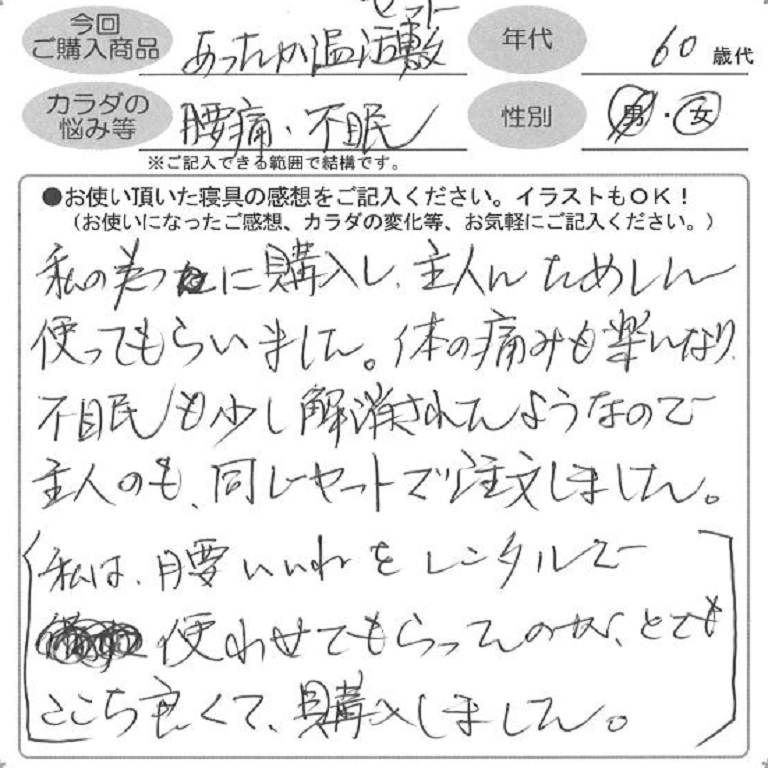 今回
ご購入商品
あったか温活敷
セット
年代
60歳代
カラダの
悩み等
腰痛、不眠
性別
男・女
※ご記入できる範囲で結構です。
●お使い頂いた寝具の感想をご記入ください。イラストもOK！
（お使いになったご感想、カラダの変化等、お気軽にご記入ください。）
私の為に購入し、主人にためしに
使ってもらいました。体の痛みも楽になり
不眠も少し解消されたようなので
主人のも、同じセットで注文しました。
私は、腰いいねをレンタルで
使わせてもらってたのが、とても
ここち良くて、購入しました。